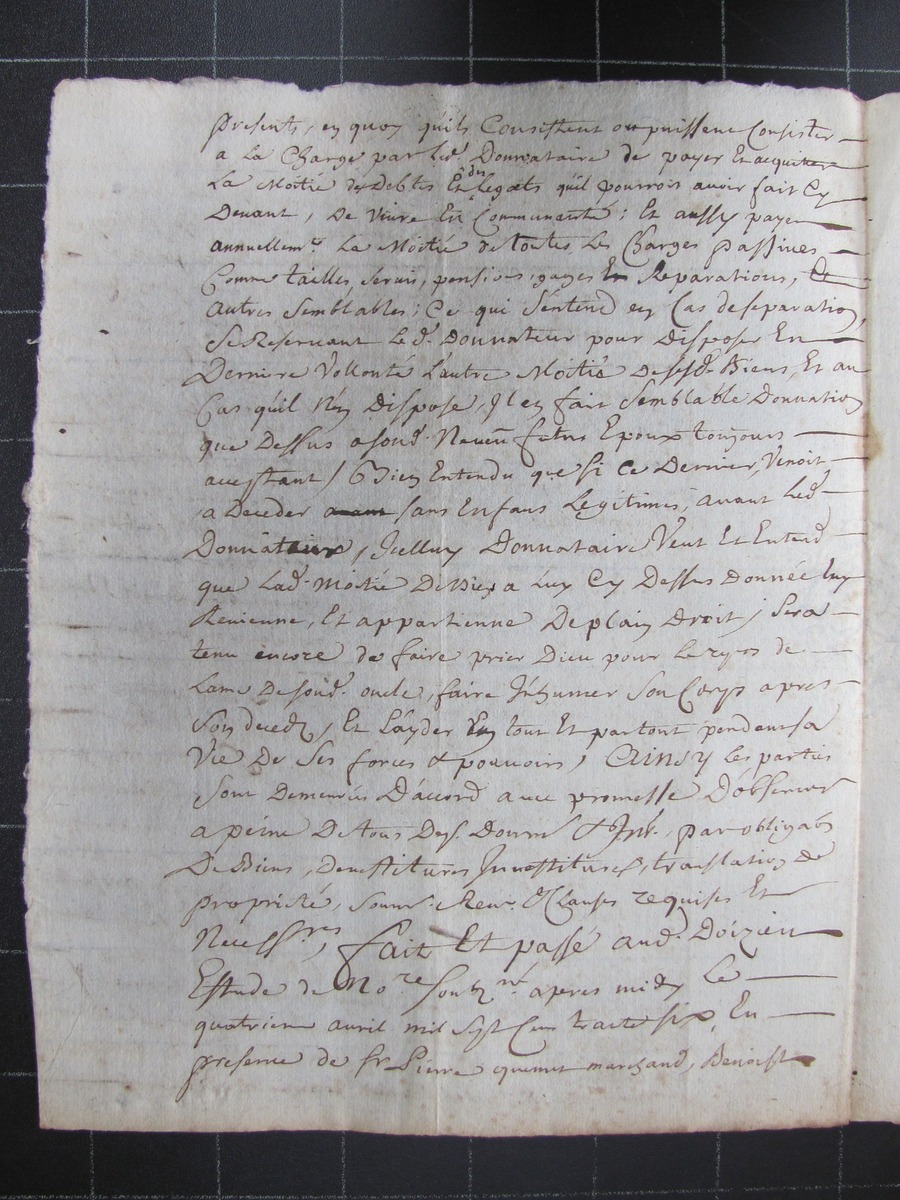 presents, en quoy quils Consistent ou puissent Consister
a La Charge par led. Donnataire de payer Et acquitter
La Moitié des Debtes Et des Legats quil pourroit avoir fait Cy
Devant, De Vivre En Communauté; Et aussy payer
annuellemt. La Moitié de toutes Les Charges passives
Comme tailles, servis, pensions, gages Et Reparations, Et
autres Semblables; Ce qui S'entend en Cas de separation
Se Reservant Led. Donnateur pour Disposer En
Derniere Vollonté L'autre Moitié Desesd. Biens, Et au
Cas quil N'en Dispose, Il en fait Semblable Donnation
que Dessus a sond. Neveu futur Epoux toujours
acceptant / Bien Entendu que Si Ce Dernier Venoit
a Deceder sans Enfans Legitimes, avant Led.
Donnateur, Icelluy Donnataire Veut Et Entend
que Lad. Moitié De Biens a Luy Cy Dessus Donnée Luy
Revienne, Et appartienne De plain Droit / Sera
tenu encore de faire prier Dieu pour Le repos de
Lame De sond. oncle, faire Inhumer Son Corps apres
Son deced, Et Layder En tout Et par tout pendent sa
Vie De Ses forces & pouvoirs, Ainsy les parties
Sont Demeurées D'accord avec promesse D'observer
a peine De tous Desp. Domm. & Int. par obligaon
De Biens, devestitures Investitures, translation de
propriété, soumis. Renon. & Clauses requises Et
Necessres, fait Et passé aud. Doizieu
Estude de Nore. soubzné. apres midy Le
quatrieme avril mil sept Cens trente six, En
presence de sr. Pierre quemet marchand, Benoist